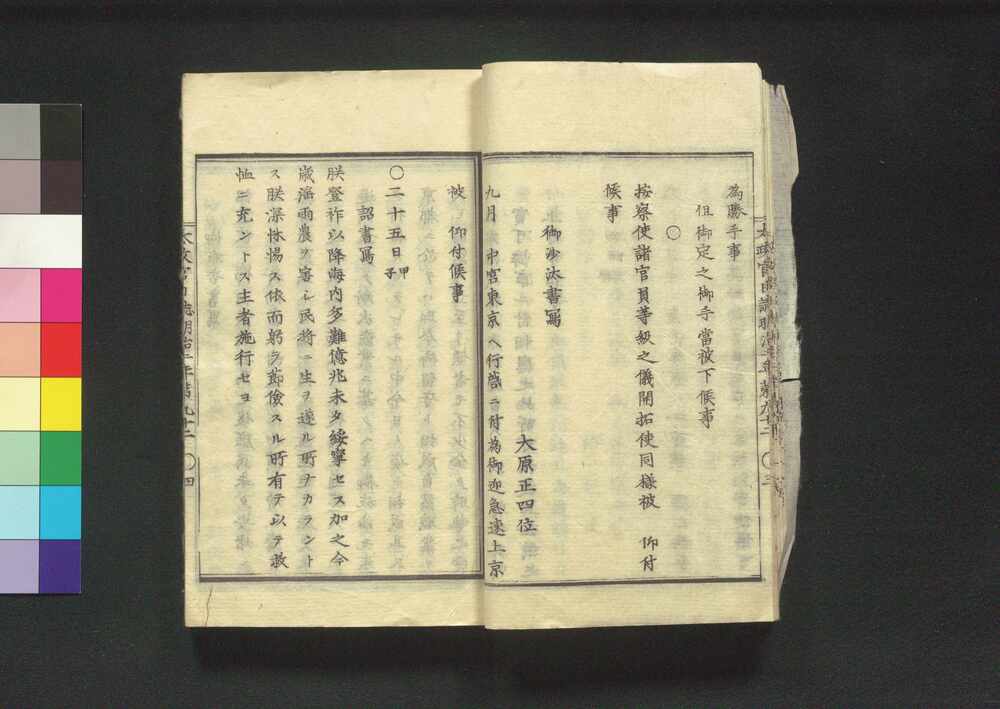 為勝手事
但御定之御手當被下候事
〇
按察使諸官員等級之儀開拓使同樣被 仰付
候事
御沙汰書寫
大原正四位
九月 中宮東京ヘ行啓ニ付為御迎急速上京
被 仰付候事
〇二十五日甲子
詔書寫
朕登祚以降海内多難億兆未タ綏寧セス加之今
歳淫雨農ヲ害シ民將ニ生ヲ遂ル所ナカラントス
朕深怵惕ス依而躬ラ節儉スル所有テ以テ救
恤ニ充ントス主者施行セヨ
太政官日誌明治二年第九十二 〇四